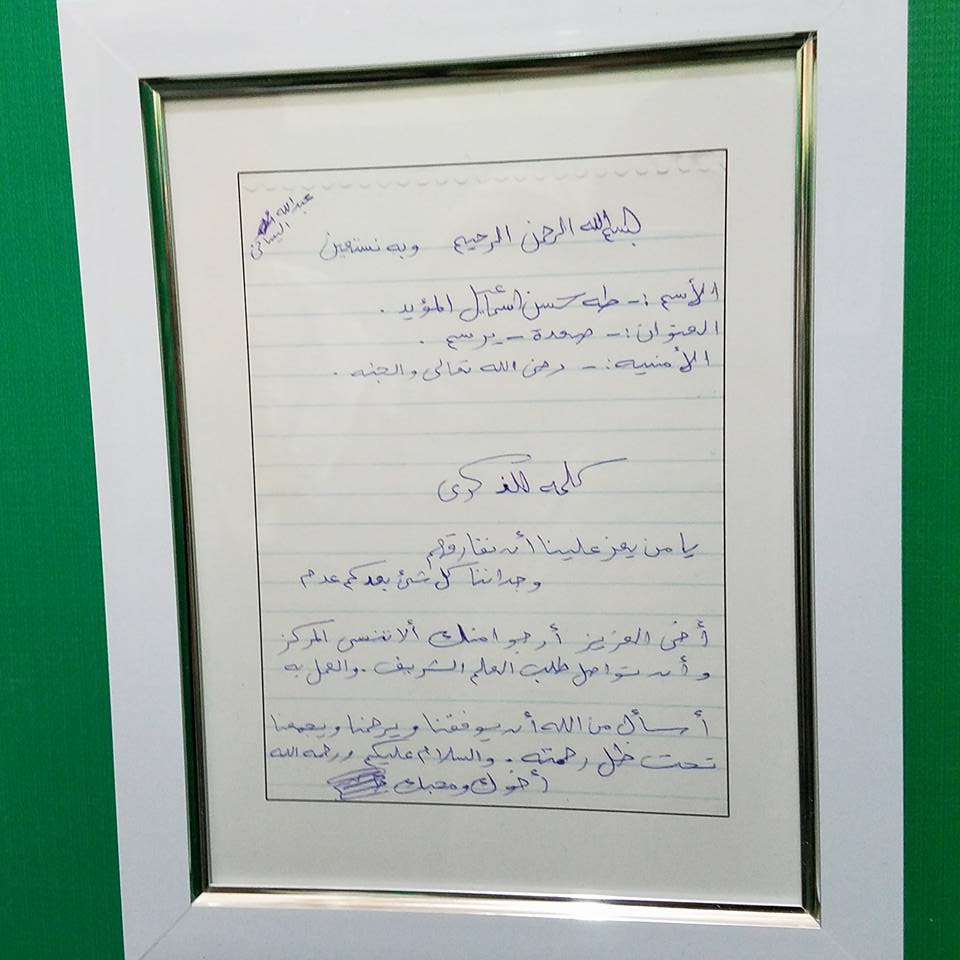 بسم الله الرحمن الرحيم وبه نستعين
عبدالله
الأسم :- طه حسن اسماعيل المؤيد .
العنوان :- صعدة - يرسم .
الأمنيه :- رضى الله تعالى والجنه .
كلمه للذكرى
يا من يعز علينا أن نفارقهم
وجداننا كل شئ بعدكم عدم
أخي العزيز أرجوا منك ألا تنسى المركز
وأن تواصل طلب العلم الشريف . والعمل به
أسأل من الله أن يوفقنا ويرحمنا ويجمعنا
تحت ظل رحمته . والسلام عليكم ورحمه الله
أخوك ومحبك